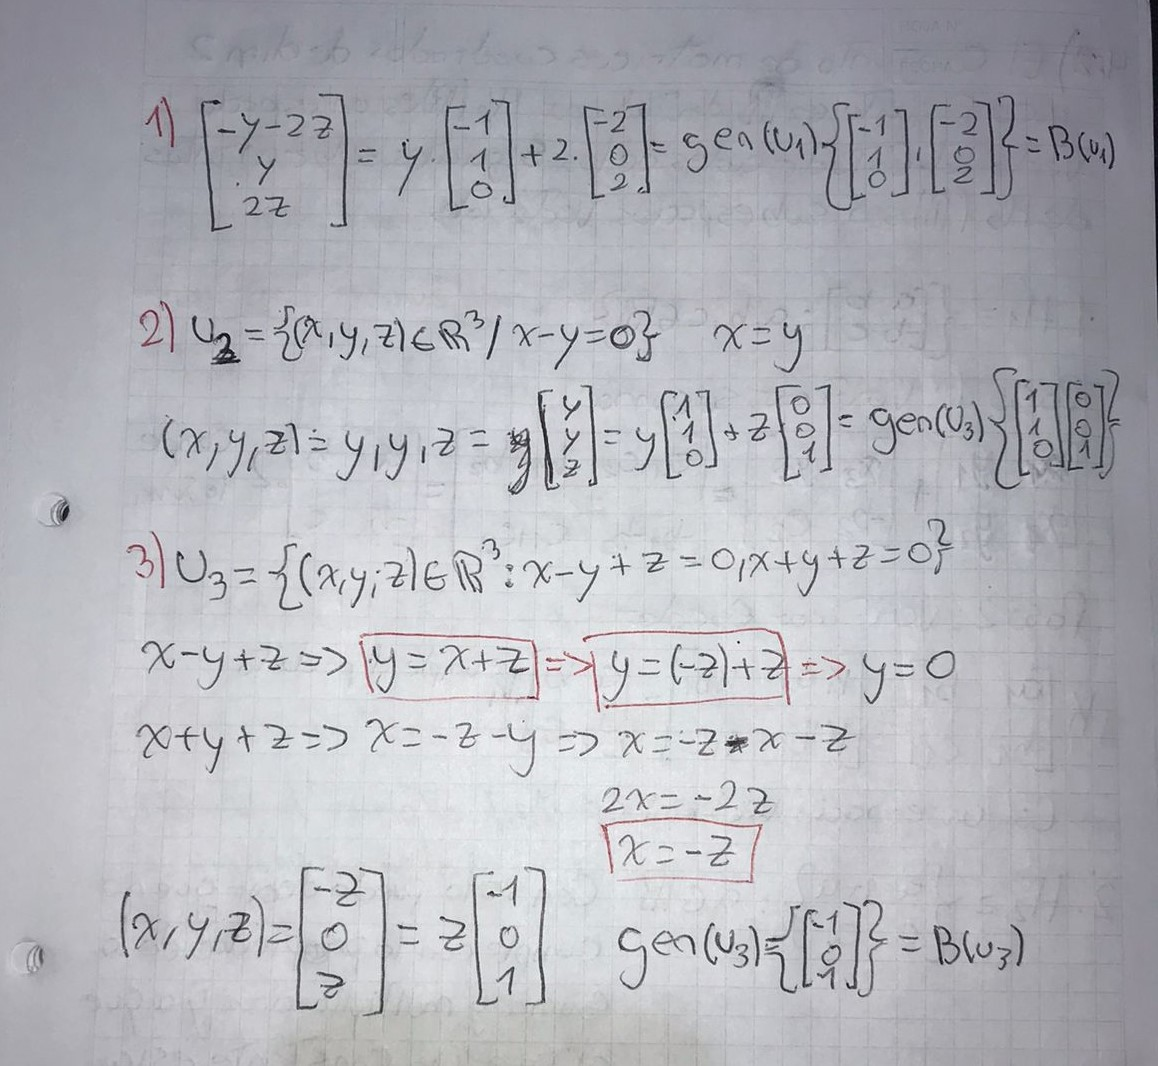 1) [-y-2z y 2z] = y·[-1 1 0] + 2·[-2 0 2] = gen(U1){[-1 1 0], [-2 0 2]} = B(U1)
2) U2 = {(x,y,z)∈ℝ³/ x-y=0} x=y
(x,y,z) = y,y,z = [y y z] = y[1 1 0] + z[0 0 1] = gen(U3){[1 1 0][0 0 1]}
3) U3 = {(x,y,z)∈ℝ³: x-y+z=0, x+y+z=0}
x-y+z => y=x+z => y=(-z)+z => y=0
x+y+z => x=-z-y => x=-z-x-z
2x=-2z
x=-z
(x,y,z) = [-z 0 z] = z[-1 0 1] gen(U3)={[-1 0 1]} = B(U3)